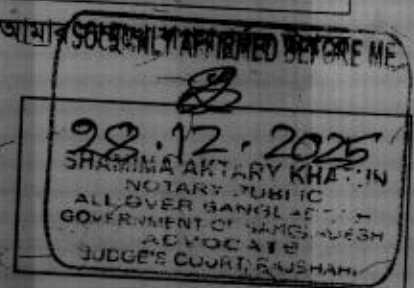 আমার SOLEMNLY AFFIRMED BEFORE ME
28.12.2025
SHAMIMA AKTARY KHATUN
NOTARY PUBLIC
ALL OVER BANGLADESH
GOVERNMENT OF BANGLADESH
ADVOCATE
JUDGE'S COURT, RAJSHAHI